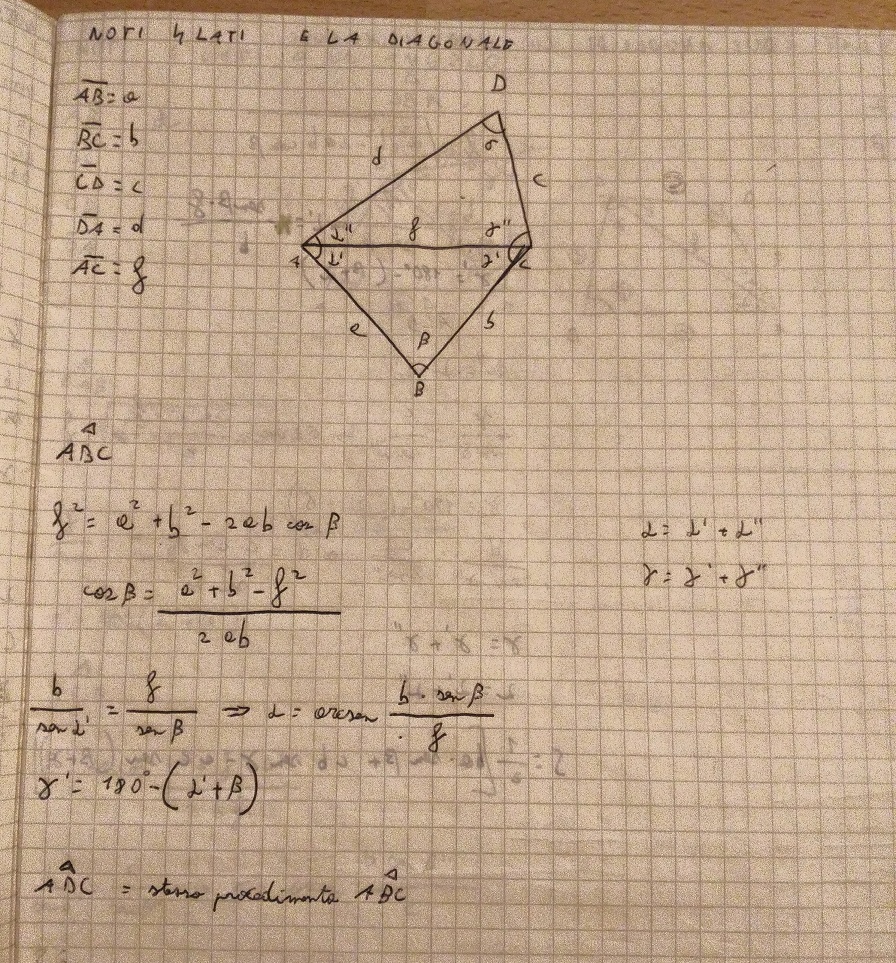 NOTI 4 LATI E LA DIAGONALE
AB = a
BC = b
CD = c
DA = d
AC = f
D
d
σ
c
A
α''
f
γ''
α'
γ'
C
a
b
β
B
ABC
f² = a² + b² - 2ab cos β
α = α' + α''
γ = γ' + γ''
cos β = a² + b² - f² / 2ab
b / sen α' = f / sen β ⇒ α = arcsen b · sen β / f
γ' = 180° - (α' + β)
ADC = stesso procedimento ABC